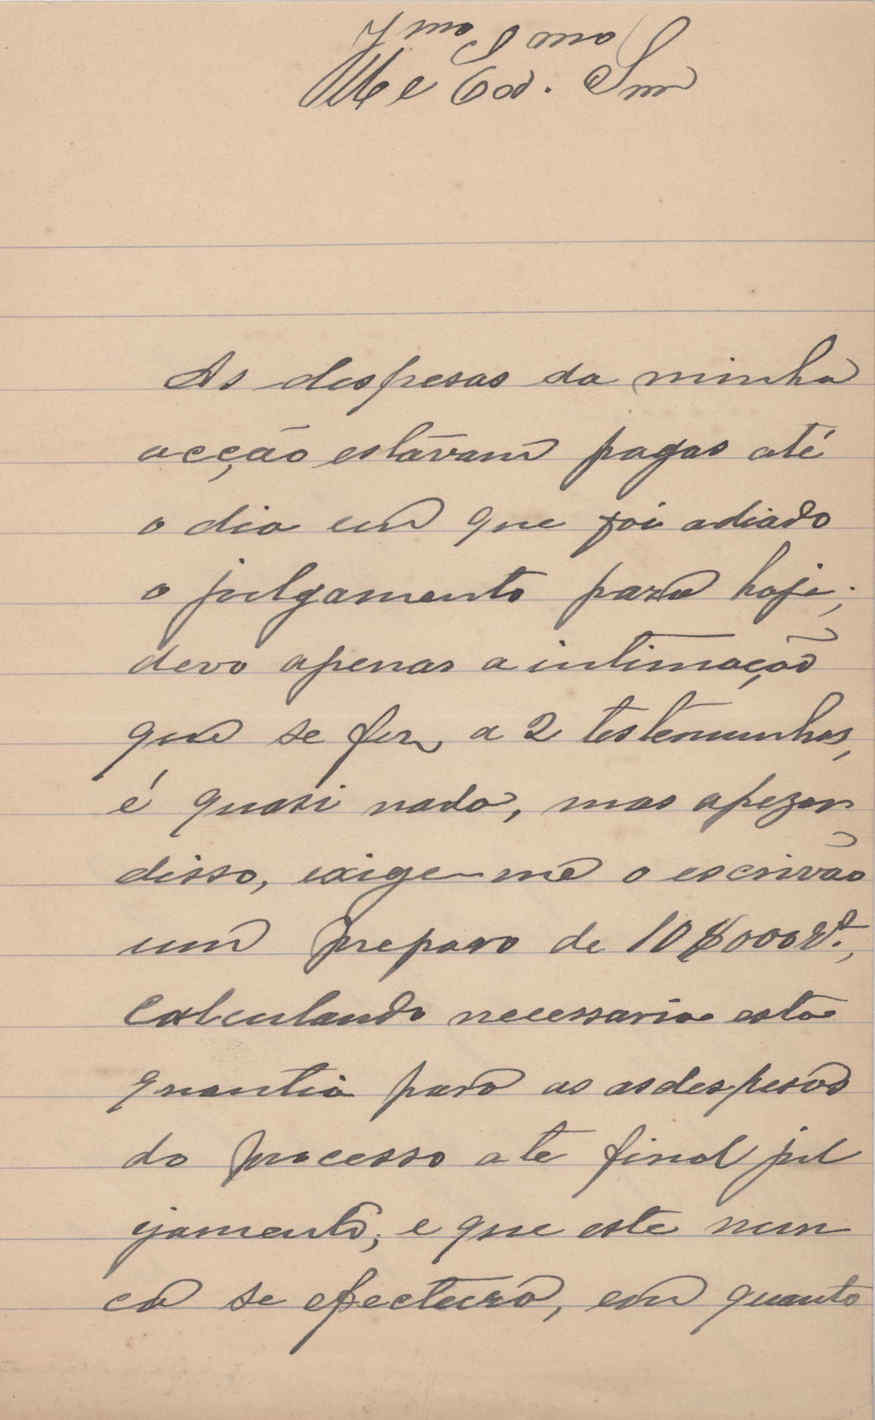 Illmo e Exmo. Snr
As despesas da minha
acção estàvam pagas até
o dia em que foi adiado
o julgamento para hoje;
devo apenas a intimação
que se fez a 2 testemunhas,
é quasi nada, mas apezar
disso, exige-me o escrivão
um preparo de 10$000 rs.,
calculando necessaria esta
quantia para as as despesas
do processo ate final jul
gamento, e que este nun
ca se efectuará, em quanto